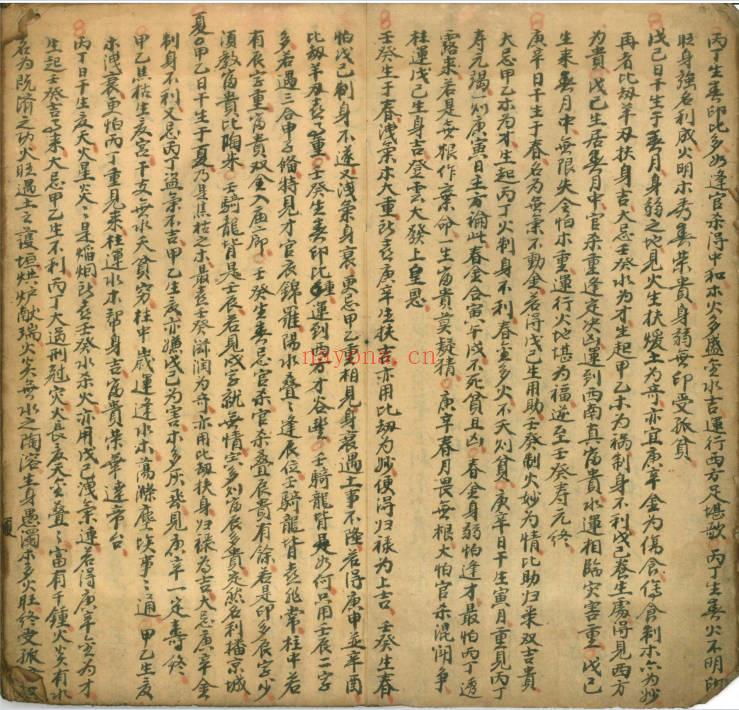 丙丁生春印比多如逢官杀得中和木火多盛宜水吉運行西方足堪歌 丙丁生春火不明印
旺身強名利成火明木秀春荣貴身弱無印受孤貧
戊己日干生于春月身弱之地見火生扶煖土为奇亦宜庚辛金为傷食傷食制木六为妙
再者比刼羊刃扶身吉大忌壬癸水为才生起甲乙木为祸制身不利戊己春生處得見西方
为貴 戊己生居春月中官杀重逢定决凶運到西南真富貴水運相臨灾害重 戊己
生来春月中無限失令怕木重運行火地堪为福逆至壬癸寿元终
庚辛日干生于春名为無氣不動金若得戊己生用助壬癸制火妙为情比助归来双吉貴
大忌甲乙木为才生起丙丁火制身不利春宜多火不夭则貧 庚辛日干生寅月重見丙丁
寿元隔一则庚寅日主方論此春金合寅午戌不死貧且凶 春金身弱怕逢才最怕丙丁透
露来若是無根作棄命一生富貴莫疑猜 庚辛春月畏無根大怕官杀混闭争
柱運戊己生身吉登雲大發上皇恩
壬癸生于春洩氣木大重所喜庚辛生扶亦用比刼为妙便得归禄为上吉 壬癸生春
怕戊己制身不遂又浅氣身衰更忌甲乙重相見身衰遇土事不隆若得庚申並辛酉
比刼羊刃喜重重 壬癸生春印比種運到西方才谷豊 壬騎龍背是如何只用壬辰二字
多若遇三合申子婚特見才官辰錦羅陽水叠叠逢辰位壬騎龍背喜非常柱中若
有辰字重富貴双全入庙廊 壬癸生春忌官杀官杀叠辰貴有餘若是印多辰字少
須教富貴比陶朱 壬騎龍背是壬辰若見戌字就無情寅多则富辰多貴定然名利播京城
夏 甲乙日干生于夏乃是焦枯之木最喜壬癸滋潤为奇亦用比刼扶身归禄为吉大忌庚辛金
制身不利又忌丙丁盗氣不吉甲乙生夏亦嫌戊己为害木多灰飛見庚辛一定寿终
甲乙焦枯生夏宫干支無水夭貧穷柱中歲運逢水木蕩滌塵埃事事通 甲乙生夏
木洩衰更怕丙丁重見来柱運水木帮身吉富貴荣華達帝台
丙丁日干生夏天火星炎炎是焰烟所喜壬癸水杀火亦用戊己洩氣連若得庚辛金为才
生起壬癸吉星来大忌甲乙生不利丙丁大過刑冠灾火長夏天金叠叠富有千鍾火炎有水
名为既濟之功火旺遇土之護垣烘炉献瑞火炎無水之陶溶生身愚濁木多火旺终受孤
nayona.cn